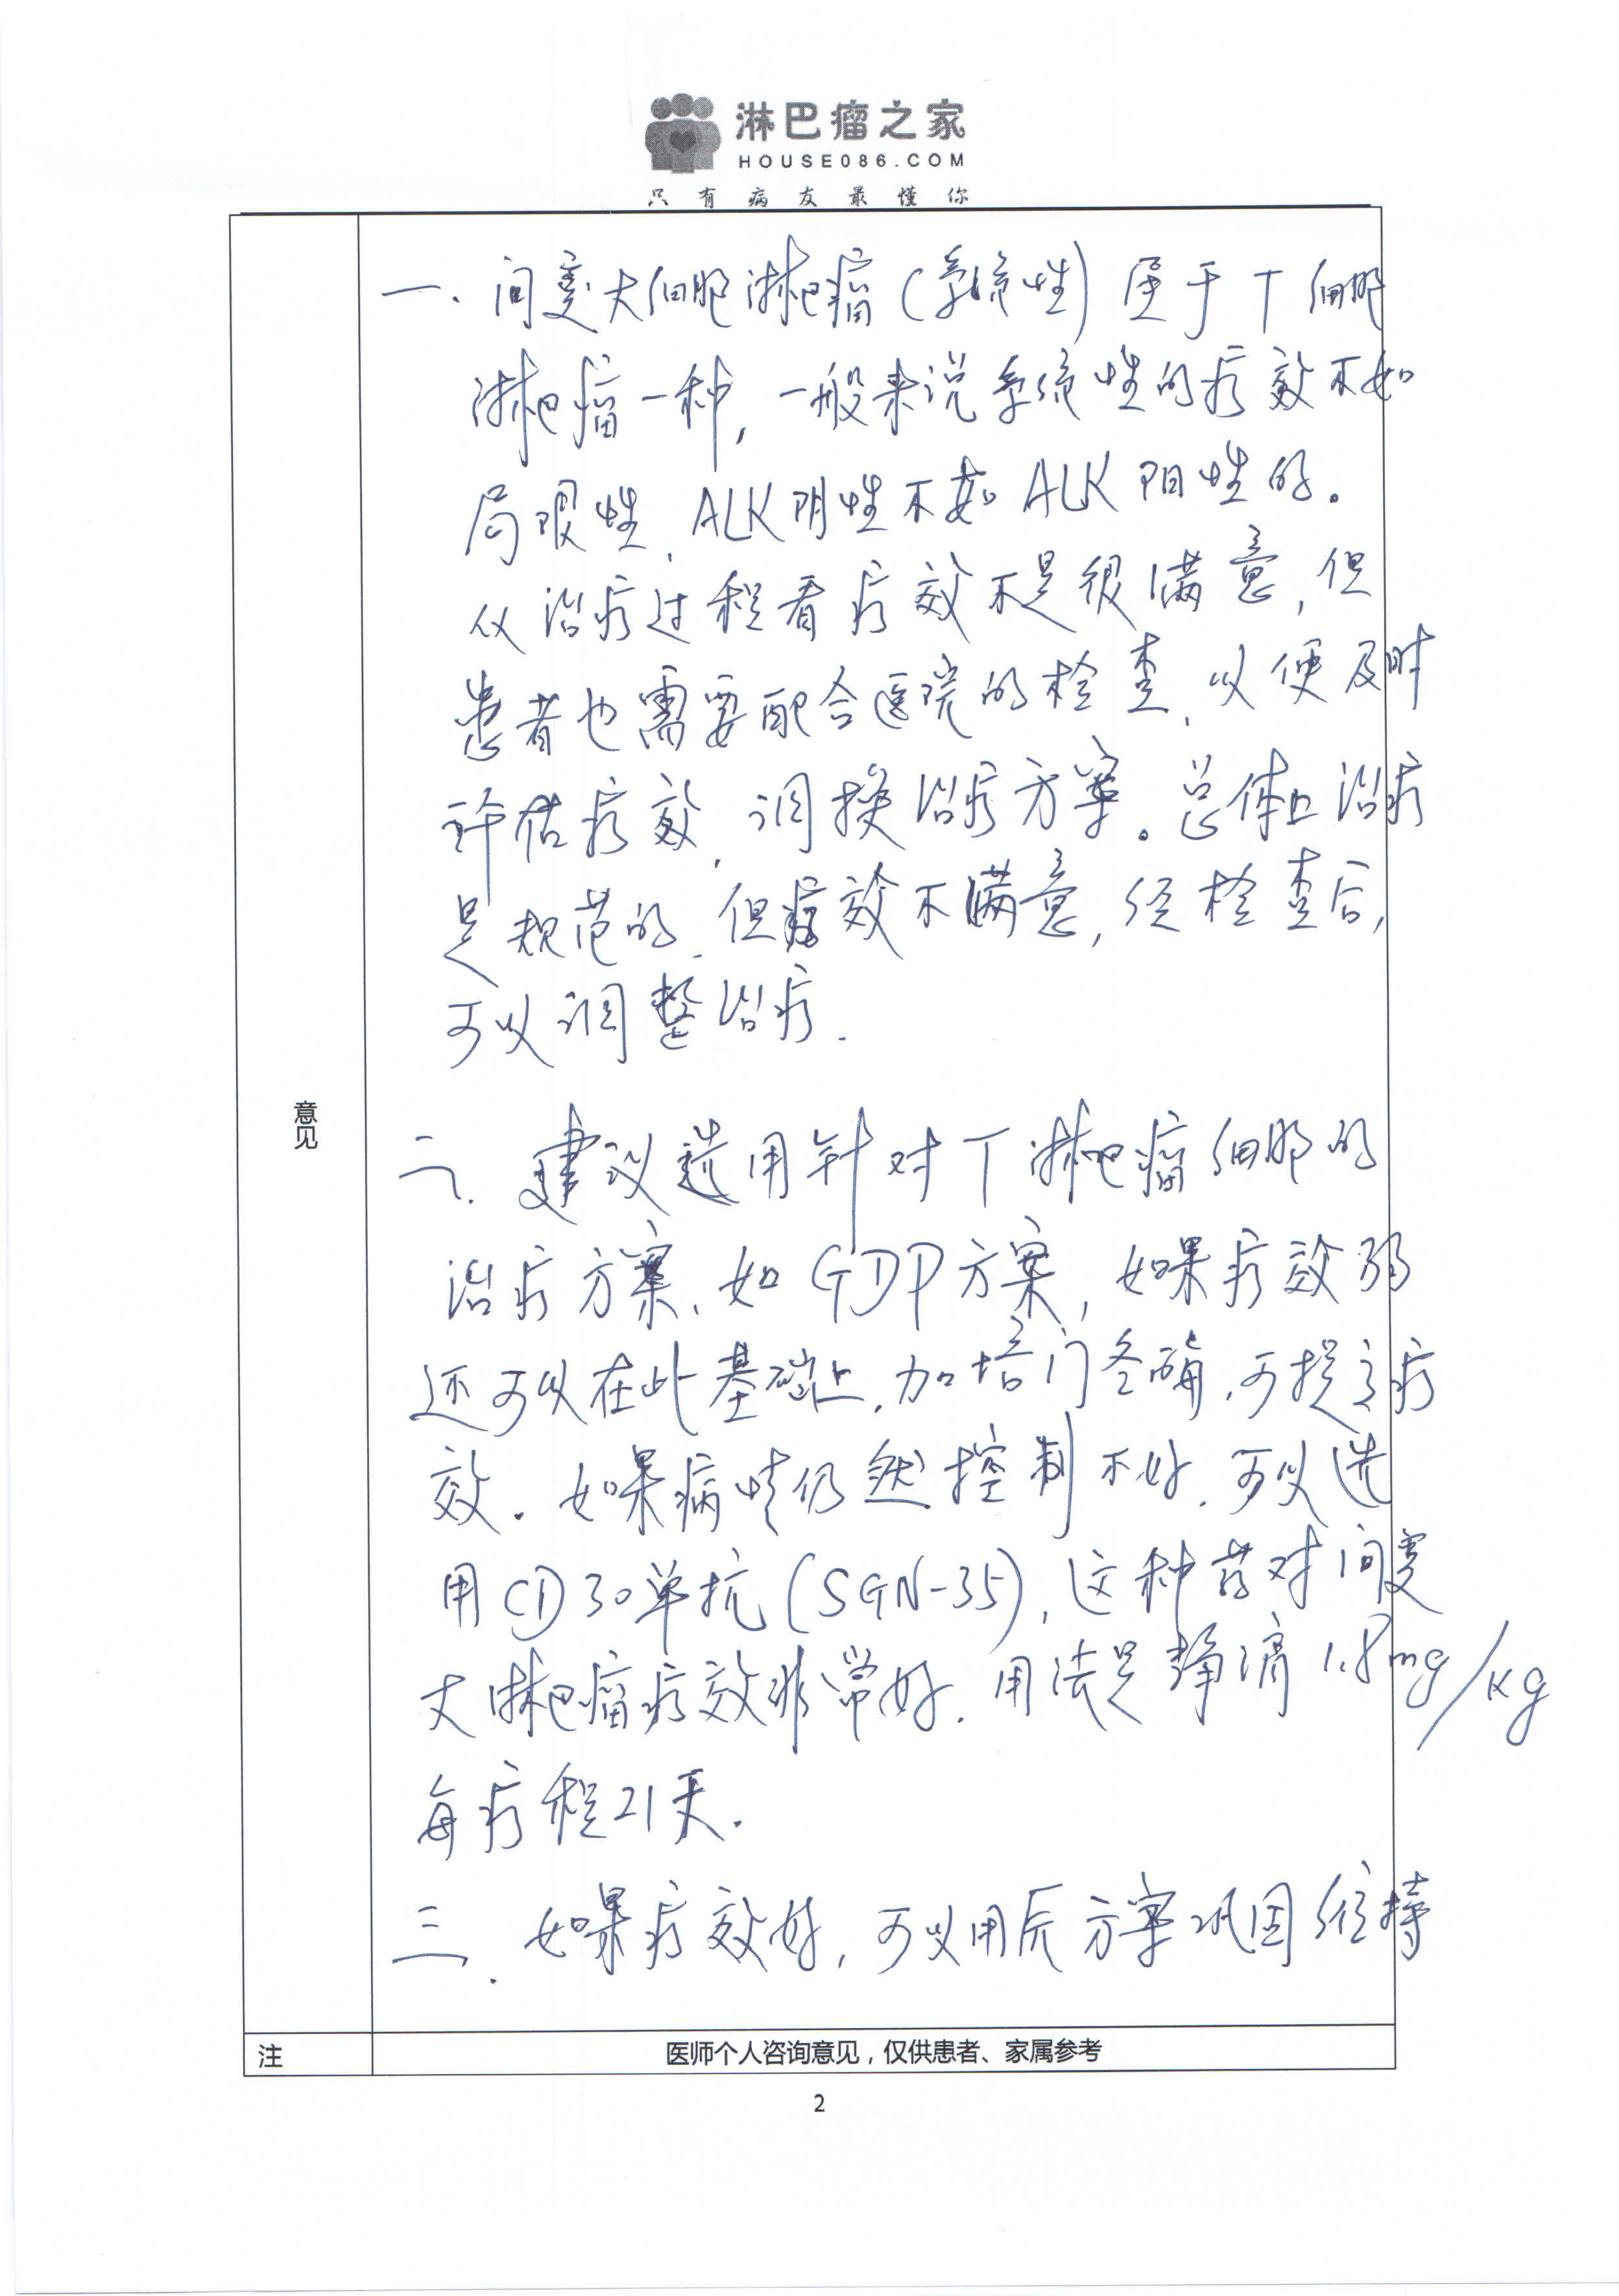 淋巴瘤之家
HOUSE086.COM
只有病友最懂你
一.间变大细胞淋巴瘤(系统性)属于T细胞
淋巴瘤一种,一般来说系统性的疗效不如
局限性,ALK阴性不如ALK阳性的。
从治疗过程看疗效不是很满意,但
患者也需要配合医院的检查,以便及时
评估疗效,调换治疗方案。总体上治疗
是规范的,但疗效不满意,经检查后,
可以调整治疗.
意见
二.建议选用针对T淋巴瘤细胞的
治疗方案,如GDP方案,如果疗效弱
还可以在此基础上,加培门冬酶,可提高疗
效.如果病情仍然控制不好,可以选
用CD30单抗(SGN-35),这种药对间变
大淋巴瘤疗效非常好.用法是静滴1.8mg/kg
每疗程21天.
三.如果疗效好,可以用原方案巩固维持
注 医师个人咨询意见,仅供患者、家属参考
2